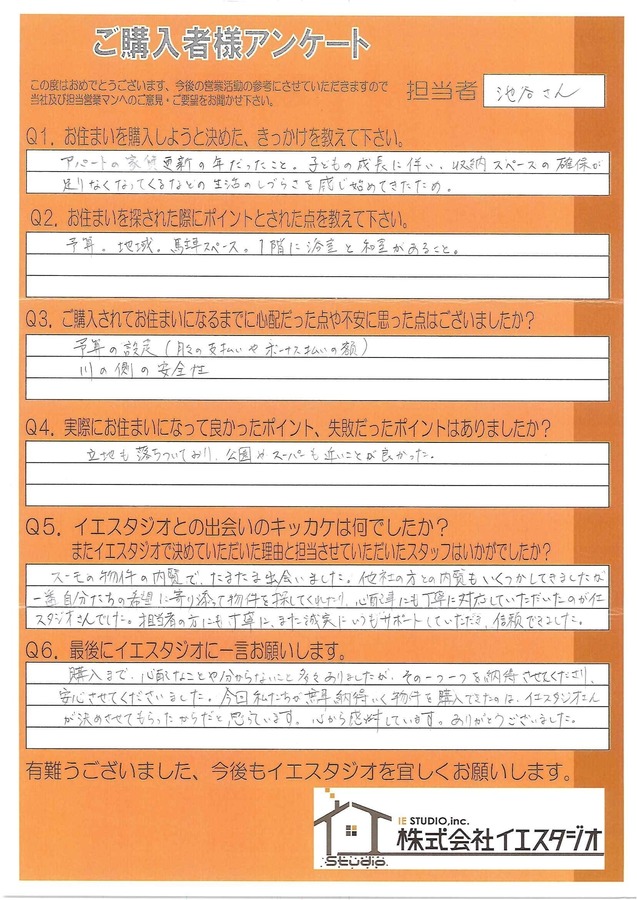 ご購入者様アンケート
この度はおめでとうございます、今後の営業活動の参考にさせていただきますので
当社及び担当営業マンへのご意見・ご要望をお聞かせ下さい。
担当者 池谷さん
Q1. お住まいを購入しようと決めた、きっかけを教えて下さい。
アパートの家賃更新の年だったこと。子どもの成長に伴い、収納スペースの確保が
足りなくなってくるなどの生活のしづらさを感じ始めてきたため。
Q2. お住まいを探された際にポイントとされた点を教えて下さい。
予算。地域。駐車スペース。1階に浴室と和室があること。
Q3. ご購入されてお住まいになるまでに心配だった点や不安に思った点はございましたか?
予算の設定(月々の支払いやボーナス払いの額)
川の側の安全性
Q4. 実際にお住まいになって良かったポイント、失敗だったポイントはありましたか?
立地も落ちついており、公園やスーパーも近いことが良かった。
Q5. イエスタジオとの出会いのキッカケは何でしたか?
またイエスタジオで決めていただいた理由と担当させていただいたスタッフはいかがでしたか?
スーモの物件の内覧で、たまたま出会いました。他社の方との内覧もいくつかしてきましたが
一番自分たちの希望に寄り添って物件を探してくれたり、心配事にも丁寧に対応していただいたのがイエ
スタジオさんでした。担当者の方にも丁寧に、また誠実にいつもサポートしていただき、信頼できました。
Q6. 最後にイエスタジオに一言お願いします。
購入まで、心配なことや分からないこと多々ありましたが、その一つ一つを納得させてくださり、
安心させてくださいました。今回私たちが無事納得いく物件を購入できたのは、イエスタジオさん
が決めさせてもらったからだと思っています。心から感謝しています。ありがとうございました。
有難うございました、今後もイエスタジオを宜しくお願いします。
IE STUDIO,inc.
株式会社イエスタジオ
Studio